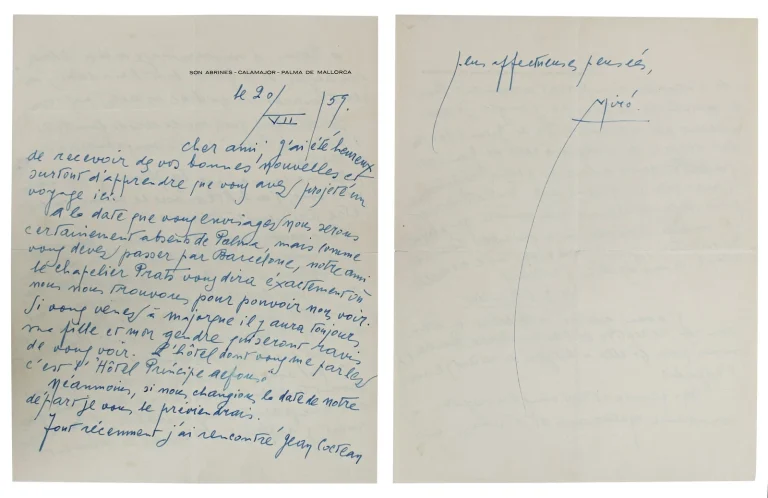 SON ABRINES - CALAMAJOR - PALMA DE MALLORCA
le 20/VII/59.
cher ami, j'ai été heureux
de recevoir de vos bonnes nouvelles et
surtout d'apprendre que vous avez projeté un
voyage ici.
A la date que vous envisagez nous serons
certainement absents de Palma, mais comme
vous devez passer par Barcelone, notre ami
le chapelier Prats vous dira exactement où
nous nous trouvons pour pouvoir nous voir.
Si vous venez à majorque il y aura toujours
ma fille et mon gendre qui seront ravis
de vous voir. L'hôtel dont vous me parlez
c'est l'Hôtel Principe Alfonso
Néanmoins, si nous changions la date de notre
départ je vous le préviendrais.
Tout récemment j'ai rencontré Jean Cocteau
affectueuses pensées,
Miró.